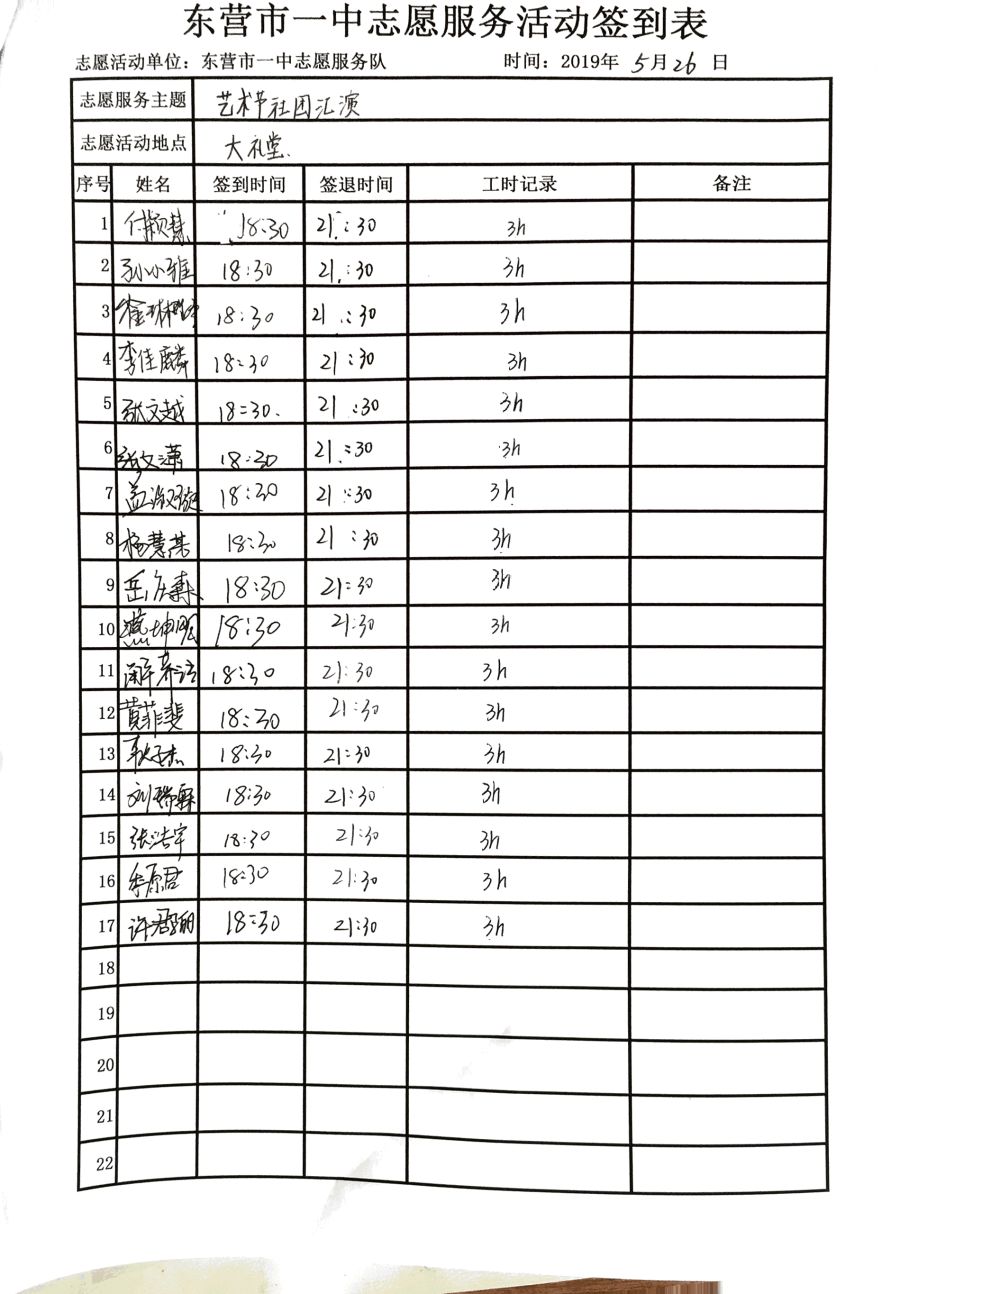 东营市一中志愿服务活动签到表
志愿活动单位：东营市一中志愿服务队 时间：2019年 5月26 日
志愿服务主题 艺术节社团汇演
志愿活动地点 大礼堂.
序号 姓名 签到时间 签退时间 工时记录 备注
1 付颖慧 18:30 21:30 3h
2 孙小雅 18:30 21:30 3h
3 18:30 21:30 3h
4 李佳麟 18:30 21:30 3h
5 张文越 18:30. 21:30 3h
6 张文潇 18:30 21:30 3h
7 孟淑璇 18:30 21:30 3h
8 杨慧其 18:30 21:30 3h
9 18:30 21:30 3h
10 燕坤 18:30 21:30 3h
11 18:30 21:30 3h
12 黄菲斐 18:30 21:30 3h
13 耿子杰 18:30 21:30 3h
14 刘瑞霖 18:30 21:30 3h
15 张浩宇 18:30 21:30 3h
16 李原君 18:30 21:30 3h
17 许 18:30 21:30 3h
18
19
20
21
22